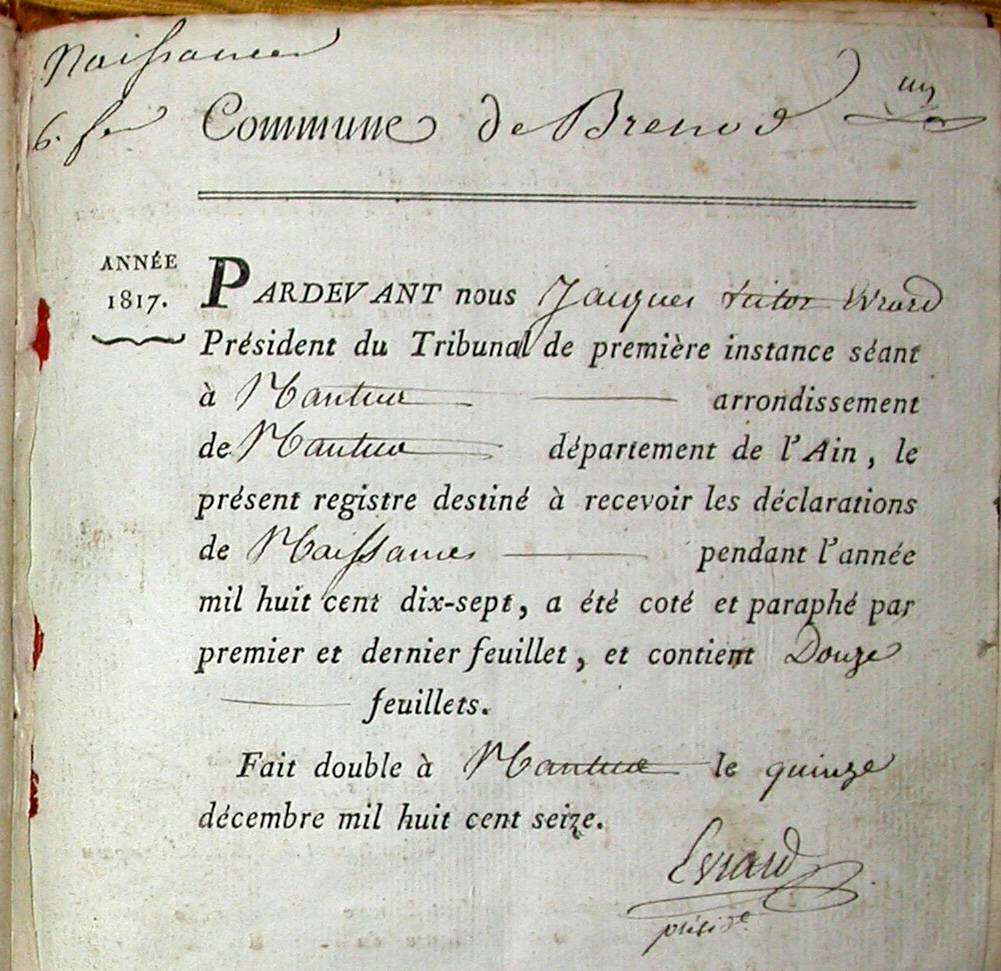 Naissances
6. fer Commune de Brenod un
ANNÉE
1817.
PARDEVANT nous Jacques Victor Evrard
Président du Tribunal de première instance séant
à Nantua arrondissement
de Nantua département de l'Ain, le
présent registre destiné à recevoir les déclarations
de Naissances pendant l'année
mil huit cent dix-sept, a été coté et paraphé par
premier et dernier feuillet, et contient Douze
feuillets.
Fait double à Nantua le quinze
décembre mil huit cent seize.
Evrard
présidt